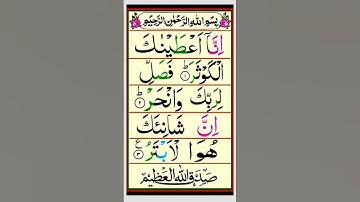 بِسْمِ اللهِ الرَّحْمٰنِ الرَّحِيْمِ
اِنَّاۤ اَعْطَيْنٰكَ
الْكَوْثَرَؕ ۝۱ فَصَلِّ
لِرَبِّكَ وَانْحَرْؕ ۝۲
اِنَّ شَانِئَكَ
هُوَا لْاَبْتَرُ ۝۳ ع
صَدَقَ اللهُ الْعَظِيْمُ